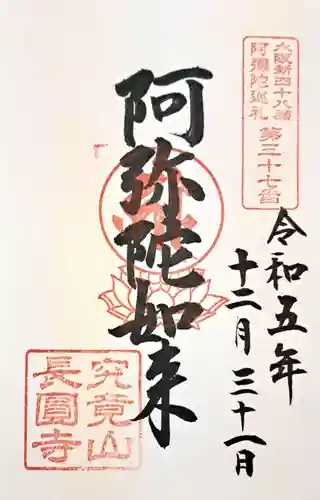 大阪新四十八願
阿彌陀巡礼 第三十七番
令和五年
十二月三十一日
阿弥陀如来
究竟山
長圓寺